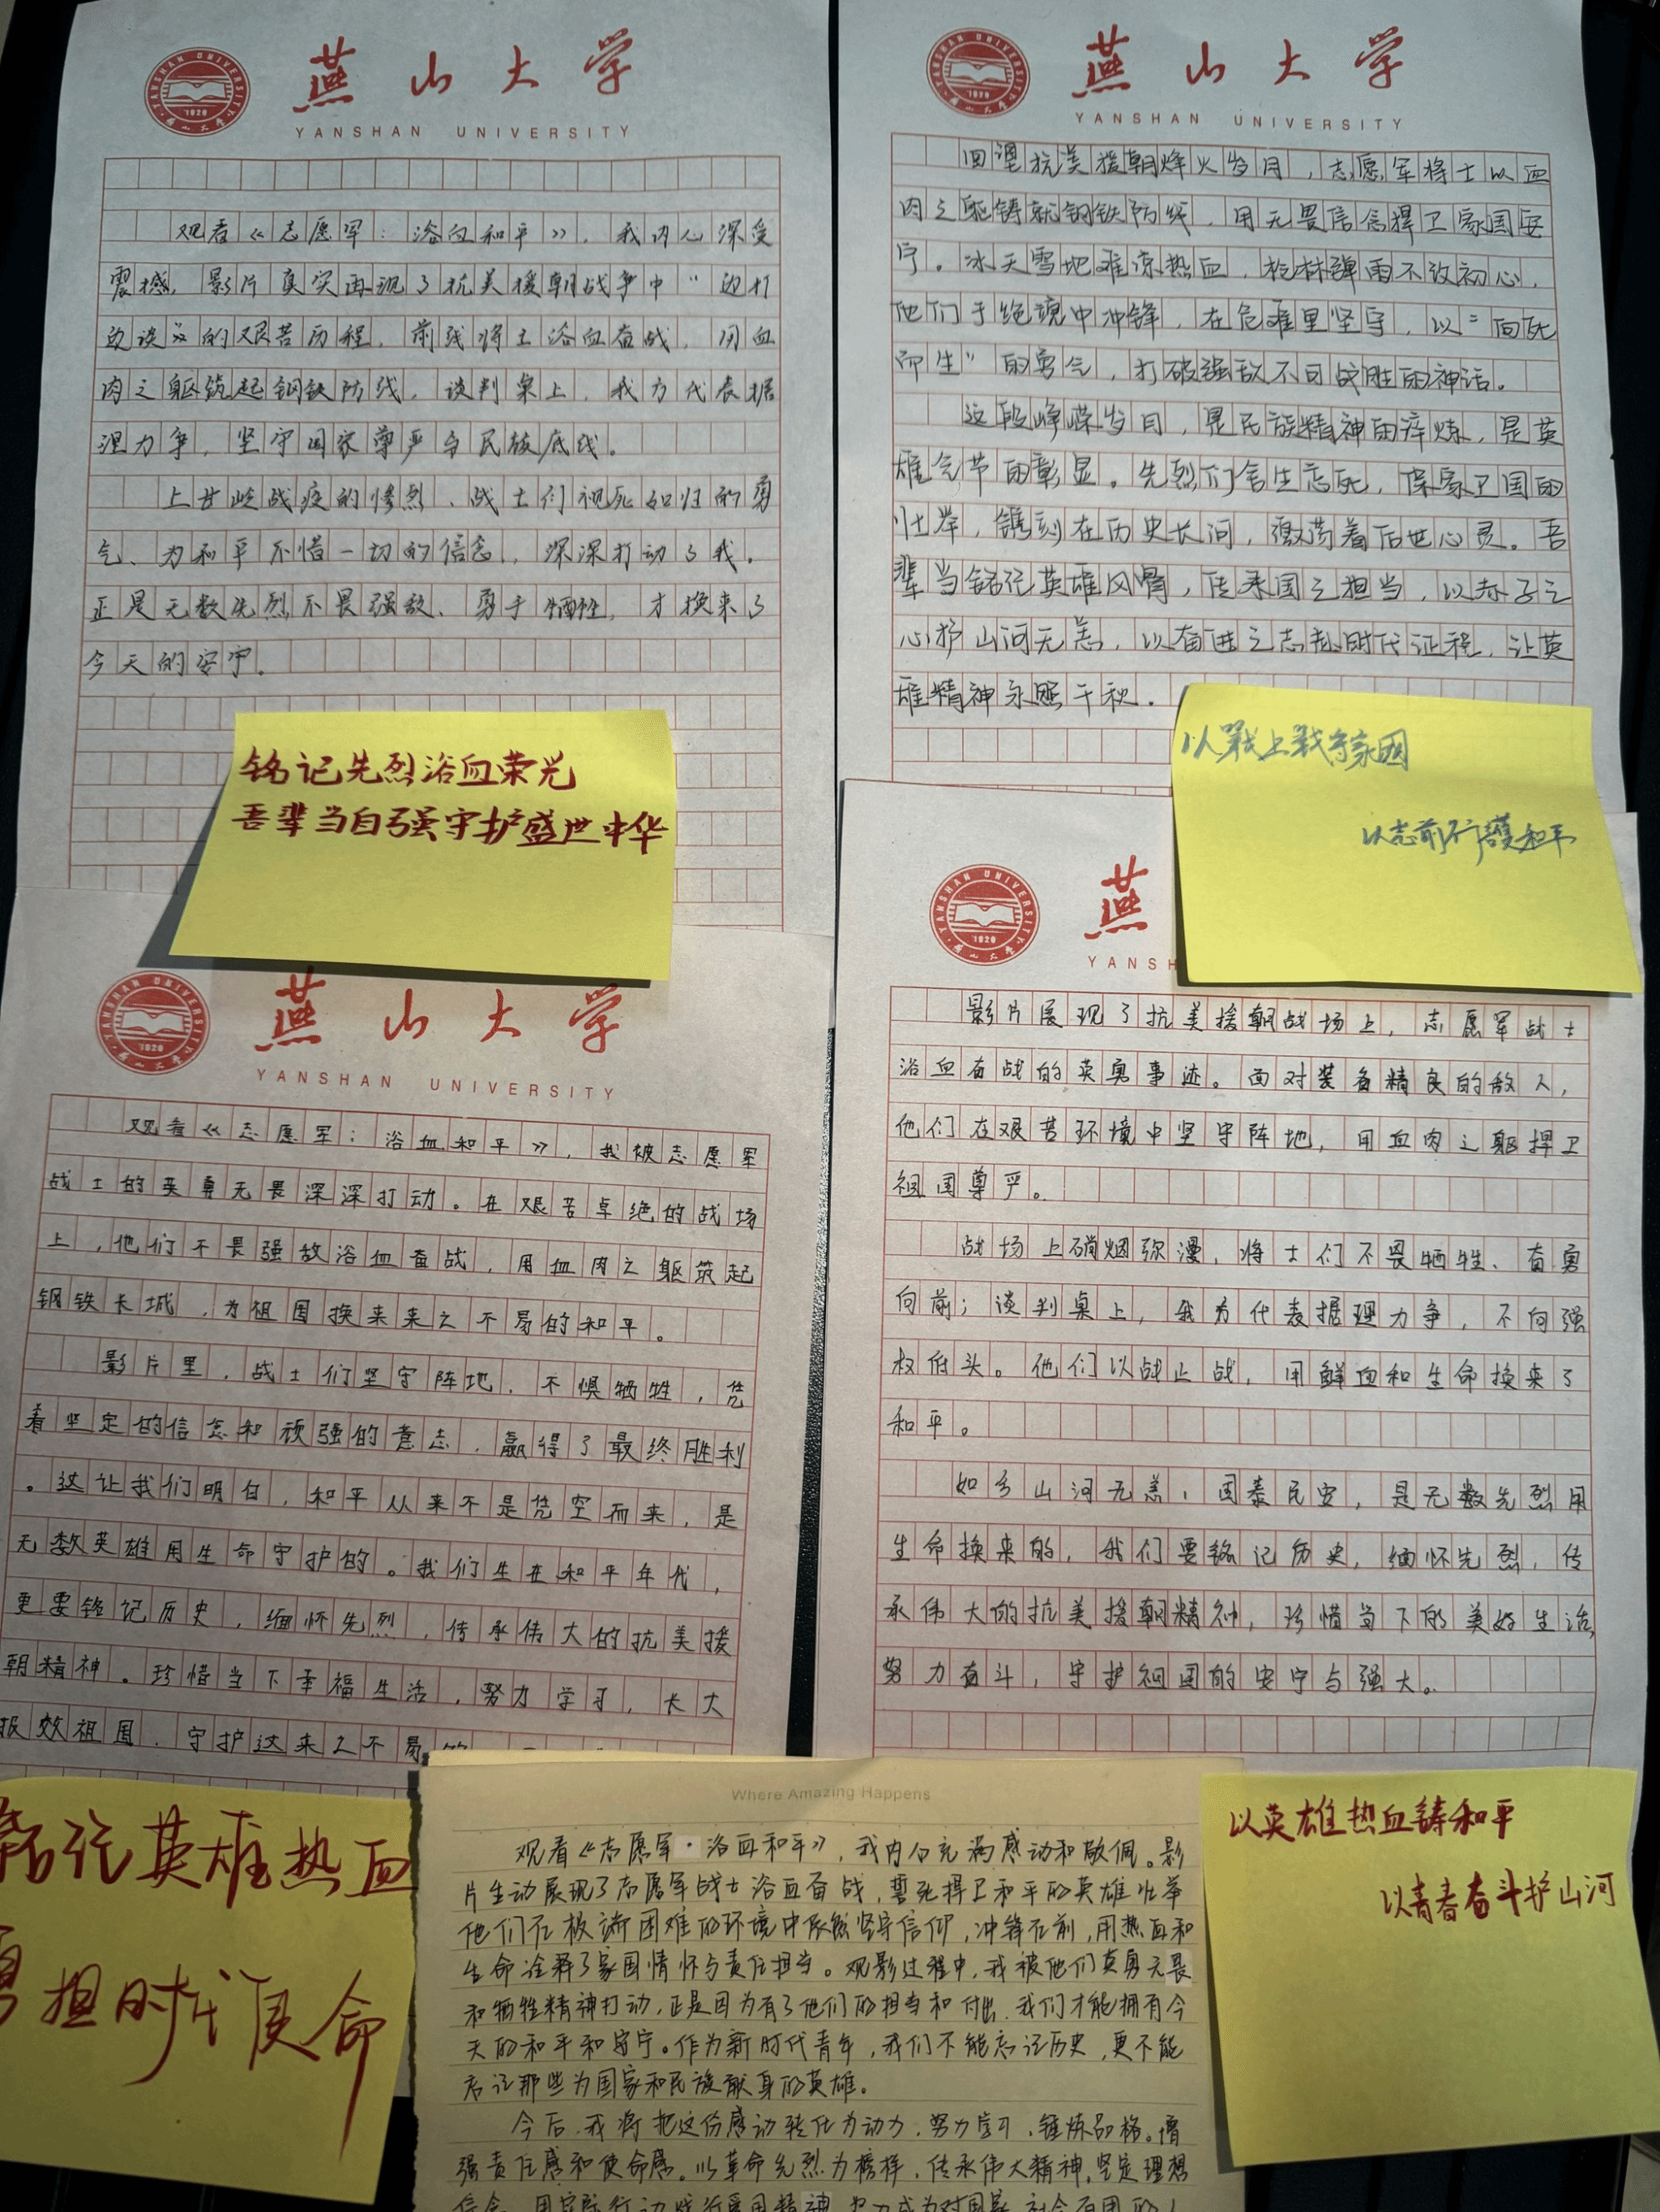 燕山大学
YANSHAN UNIVERSITY
观看《志愿军：浴血和平》，我内心深受
震撼，影片真实再现了抗美援朝战争中“边打
边谈”的艰苦历程，前线将士浴血奋战，用血
肉之躯筑起钢铁防线，谈判桌上，我方代表据
理力争，坚守国家尊严与民族底线。
上甘岭战役的惨烈、战士们视死如归的勇
气、为和平不惜一切的信念，深深打动了我。
正是无数先烈不畏强敌、勇于牺牲，才换来了
今天的安宁。
铭记先烈浴血荣光
吾辈当自强守护盛世中华
燕山大学
YANSHAN UNIVERSITY
回望抗美援朝烽火岁月，志愿军将士以血
肉之躯铸就钢铁防线，用无畏信念捍卫家国安
宁。冰天雪地难凉热血，枪林弹雨不改初心，
他们于绝境中冲锋，在危难里坚守，以“向死
而生”的勇气，打破强敌不可战胜的神话。
这段峥嵘岁月，是民族精神的淬炼，是英
雄气节的彰显。先烈们舍生忘死，保家卫国的
壮举，镌刻在历史长河，激荡着后世心灵。吾
辈当铭记英雄风骨，传承国之担当，以赤子之
心护山河无恙，以奋进之志赴时代征程，让英
雄精神永照千秋。
以戰止戰守家园
以志前行護和平
燕山大学
YANSHAN UNIVERSITY
观看《志愿军：浴血和平》，我被志愿军
战士的英勇无畏深深打动。在艰苦卓绝的战场
上，他们不畏强敌浴血奋战，用血肉之躯筑起
钢铁长城，为祖国换来来之不易的和平。
影片里，战士们坚守阵地，不惧牺牲，凭
着坚定的信念和顽强的意志，赢得了最终胜利
。这让我们明白，和平从来不是凭空而来，是
无数英雄用生命守护的。我们生在和平年代，
更要铭记历史，缅怀先烈，传承伟大的抗美援
朝精神。珍惜当下幸福生活，努力学习，长大
报效祖国，守护这来之不易的
铭记英雄热血
勇担时代使命
燕
YANSH
影片展现了抗美援朝战场上，志愿军战士
浴血奋战的英勇事迹。面对装备精良的敌人，
他们在艰苦环境中坚守阵地，用血肉之躯捍卫
祖国尊严。
战场上硝烟弥漫，将士们不畏牺牲、奋勇
向前；谈判桌上，我方代表据理力争，不向强
权低头。他们以战止战，用鲜血和生命换来了
和平。
如今山河无恙，国泰民安，是无数先烈用
生命换来的，我们要铭记历史，缅怀先烈，传
承伟大的抗美援朝精神，珍惜当下的美好生活，
努力奋斗，守护祖国的安宁与强大。
Where Amazing Happens
观看《志愿军·浴血和平》，我内心充满感动和敬佩。影
片生动展现了志愿军战士浴血奋战，誓死捍卫和平的英雄壮举
他们在极端困难的环境中依然坚守信仰，冲锋在前，用热血和
生命诠释了家国情怀与责任担当。观影过程中，我被他们英勇无畏
和牺牲精神打动，正是因为有了他们的担当和付出，我们才能拥有今
天的和平和安宁。作为新时代青年，我们不能忘记历史，更不能
忘记那些为国家和民族献身的英雄。
今后，我将把这份感动转化为动力，努力学习，锤炼品格。增
强责任感和使命感。以革命先烈为榜样，传承伟大精神，坚定理想
信念，用实际行动践行爱国精神，努力成为对国家、社会有用的人
以英雄热血铸和平
以青春奋斗护山河